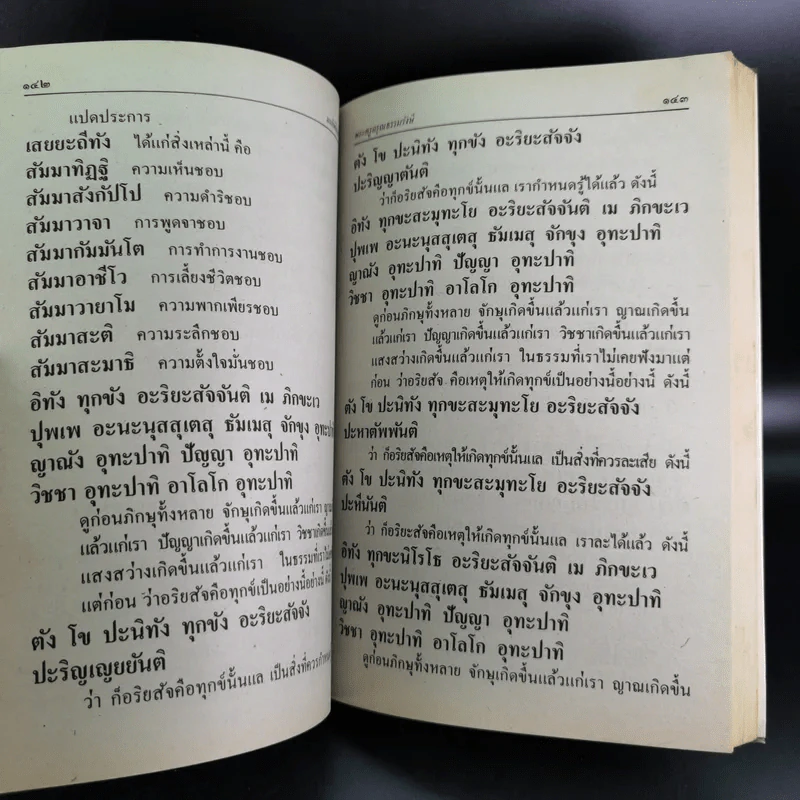 ๑๔๒
แปดประการ
เสยยะถีทัง ได้แก่สิ่งเหล่านี้ คือ
สัมมาทิฏฐิ ความเห็นชอบ
สัมมาสังกัปโป ความดำริชอบ
สัมมาวาจา การพูดจาชอบ
สัมมากัมมันโต การทำการงานชอบ
สัมมาอาชีโว การเลี้ยงชีวิตชอบ
สัมมาวายาโม ความพากเพียรชอบ
สัมมาสะติ ความระลึกชอบ
สัมมาสะมาธิ ความตั้งใจมั่นชอบ
อิทัง ทุกขัง อะริยะสัจจันติ เม ภิกขะเว
ปุพเพ อะนะนุสสุเตสุ ธัมเมสุ จักขุง อุทะปาทิ
ญาณัง อุทะปาทิ ปัญญา อุทะปาทิ
วิชชา อุทะปาทิ อาโลโก อุทะปาทิ
ดูก่อนภิกษุทั้งหลาย จักษุเกิดขึ้นแล้วแก่เรา
แล้วแก่เรา ปัญญาเกิดขึ้นแล้วแก่เรา
แสงสว่างเกิดขึ้นแล้วแก่เรา ในธรรมที่เรา
แต่ก่อน ว่าอริยสัจคือทุกข์เป็นอย่างนี้อย่างนี้
ตัง โข ปะนิทัง ทุกขัง อะริยะสัจจัง
ปะริญเญยยันติ
ว่า ก็อริยสัจคือทุกข์นั้นแล เป็นสิ่งที่ควร
๑๔๓
ตัง โข ปะนิทัง ทุกขัง อะริยะสัจจัง
ปะริญญาตันติ
ว่าก็อริยสัจคือทุกข์นั้นแล เรากำหนดรู้ได้แล้ว ดังนี้
อิทัง ทุกขะสะมุทะโย อะริยะสัจจันติ เม ภิกขะเว
ปุพเพ อะนะนุสสุเตสุ ธัมเมสุ จักขุง อุทะปาทิ
ญาณัง อุทะปาทิ ปัญญา อุทะปาทิ
วิชชา อุทะปาทิ อาโลโก อุทะปาทิ
ดูก่อนภิกษุทั้งหลาย จักษุเกิดขึ้นแล้วแก่เรา ญาณเกิดขึ้น
แล้วแก่เรา ปัญญาเกิดขึ้นแล้วแก่เรา วิชชาเกิดขึ้นแล้วแก่เรา
แสงสว่างเกิดขึ้นแล้วแก่เรา ในธรรมที่เราไม่เคยฟังมาแต่
ก่อน ว่าอริยสัจ คือเหตุให้เกิดทุกข์เป็นอย่างนี้อย่างนี้ ดังนี้
ตัง โข ปะนิทัง ทุกขะสะมุทะโย อะริยะสัจจัง
ปะหาตัพพันติ
ว่า ก็อริยสัจคือเหตุให้เกิดทุกข์นั้นแล เป็นสิ่งที่ควรละเสีย ดังนี้
ตัง โข ปะนิทัง ทุกขะสะมุทะโย อะริยะสัจจัง
ปะหีนันติ
ว่า ก็อริยสัจคือเหตุให้เกิดทุกข์นั้นแล เราละได้แล้ว ดังนี้
อิทัง ทุกขะนิโรโธ อะริยะสัจจันติ เม ภิกขะเว
ปุพเพ อะนะนุสสุเตสุ ธัมเมสุ จักขุง อุทะปาทิ
ญาณัง อุทะปาทิ ปัญญา อุทะปาทิ
วิชชา อุทะปาทิ อาโลโก อุทะปาทิ
ดูก่อนภิกษุทั้งหลาย จักษุเกิดขึ้นแล้วแก่เรา ญาณเกิดขึ้น